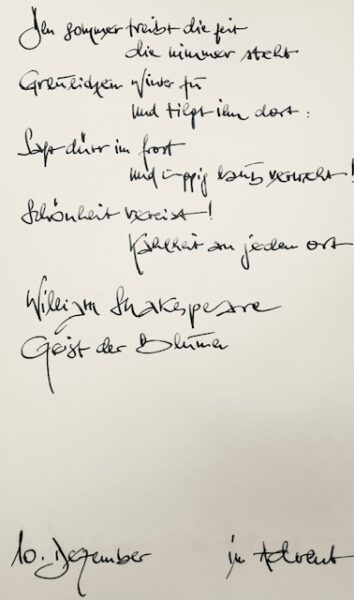 Den sommer treibt die zeit
die nimmer steht
Greulichem Winter zu
und tilgt ihn dort:
Saft dürr im frost
und üppig laub verweht!
Schönheit vereist!
Kahlheit an jedem ort
William Shakespeare
Geist der Blumen
10. Dezember im Advent